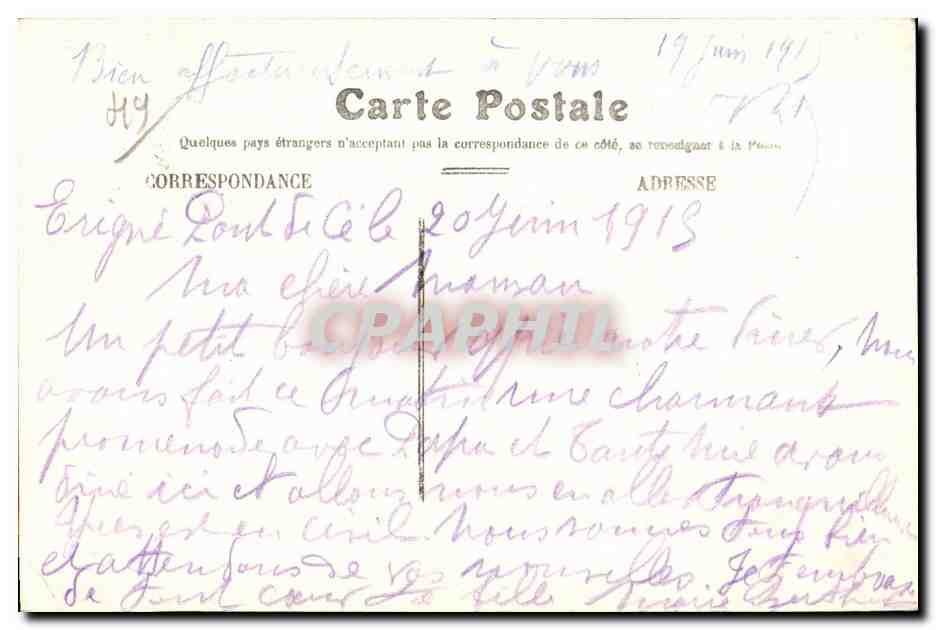 Bien affectueusement à vous 19 Juin 1915
49
Carte Postale
Quelques pays étrangers n'acceptent pas la correspondance de ce côté, se renseigner à la Poste
CORRESPONDANCE ADRESSE
Erigné Pont de Cé le 20 Juin 1915
Ma chère Maman
CPAPHIL
Un petit bonjour après notre diner, nous
avons fait ce matin une charmante
promenade avec Papa et Tante avons
diné ici et allons nous en aller tranquillement
est en civil. Nous sommes tous bien
et attendons de vos nouvelles. Je t'embrasse
de tout cœur Ta fille Marie